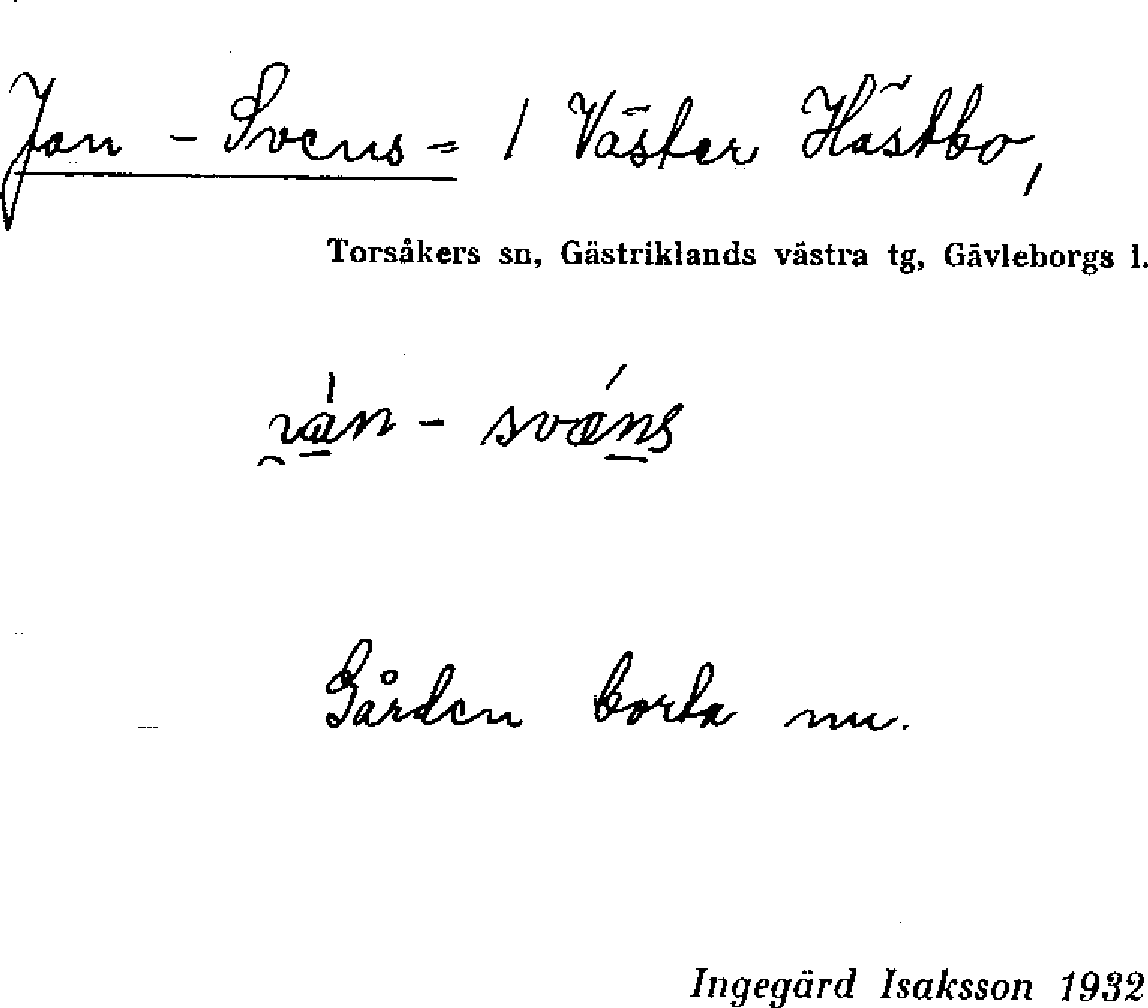 Jan - Svens = / Väster Hästbo,
Torsåkers sn, Gästriklands västra tg, Gävleborgs l.
- svæns
Gården borta nu.
Ingegärd Isaksson 1932